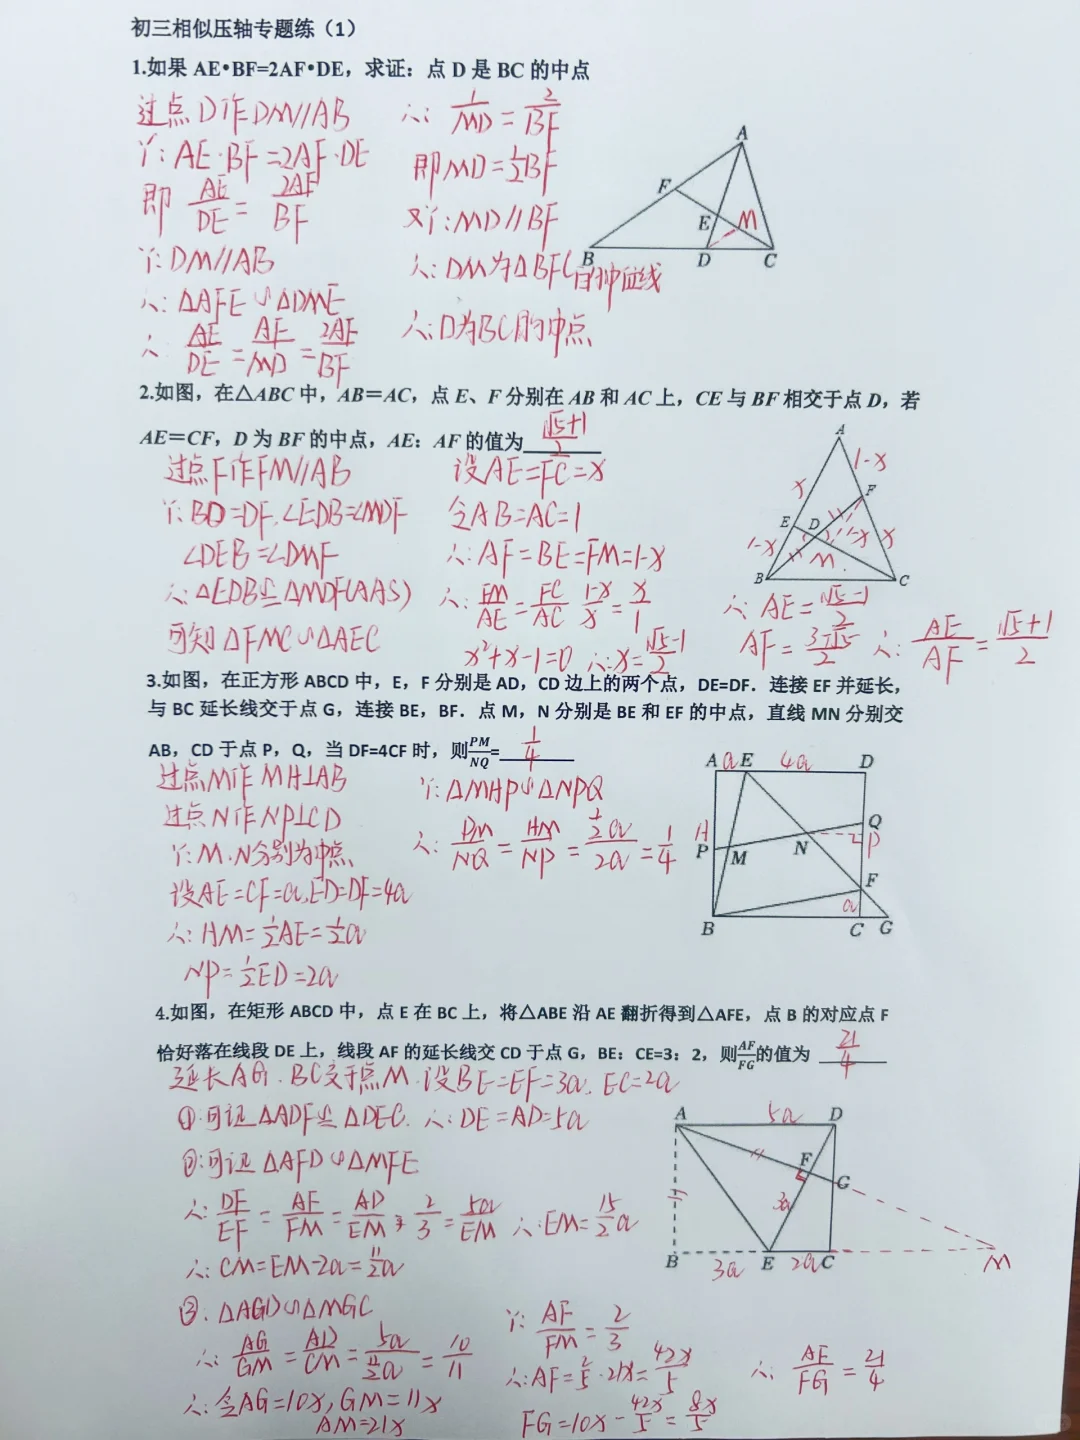 初三相似压轴专题练（1）
1.如果 AE•BF=2AF•DE，求证：点 D 是 BC 的中点
过点D作DM//AB
∵AE·BF=2AF·DE
即 AE/DE = 2AF/BF
∵DM//AB
∴△AFE∽△DME
∴ AE/DE = AF/MD = 2AF/BF
∴ 1/MD = 2/BF
即MD=1/2BF
又∵MD//BF
∴DM为△BFC的中位线
∴D为BC的中点
A
F
E
M
B
D
C
2.如图，在△ABC 中，AB＝AC，点 E、F 分别在 AB 和 AC 上，CE 与 BF 相交于点 D，若
AE＝CF，D 为 BF 的中点，AE：AF 的值为 (√5+1)/2
过点F作FM//AB
∵BD=DF,∠EDB=∠MDF
∠DEB=∠DMF
∴△EDB≌△MDF(AAS)
可知△FMC∽△AEC
设AE=FC=x
令AB=AC=1
∴AF=BE=FM=1-x
∴ FM/AE = FC/AC (1-x)/x = x/1
x²+x-1=0 ∴x=(√5-1)/2
A
x
1-x
F
E
D
1-x
1-x
x
M
B
C
∴AE=(√5-1)/2
AF=(3-√5)/2 ∴ AE/AF = (√5+1)/2
3.如图，在正方形 ABCD 中，E，F 分别是 AD，CD 边上的两个点，DE=DF．连接 EF 并延长，
与 BC 延长线交于点 G，连接 BE，BF．点 M，N 分别是 BE 和 EF 的中点，直线 MN 分别交
AB，CD 于点 P，Q，当 DF=4CF 时，则PM/NQ= 1/4
过点M作MH⊥AB
过点N作NP⊥CD
∵M.N分别为中点
设AE=CF=a,ED=DF=4a
∴HM=1/2AE=1/2a
NP=1/2ED=2a
∵△MHP∽△NPQ
∴ PM/NQ = HM/NP = (1/2a)/2a = 1/4
A a E 4a D
H
Q
P
M
N
P
F
a
B
C
G
4.如图，在矩形 ABCD 中，点 E 在 BC 上，将△ABE 沿 AE 翻折得到△AFE，点 B 的对应点 F
恰好落在线段 DE 上，线段 AF 的延长线交 CD 于点 G，BE：CE=3：2，则AF/FG的值为 21/4
延长AG.BC交于点M.设BE=EF=3a.EC=2a
①:可证△ADF≌△DEC.∴DE=AD=5a
②:可证△AFD∽△MFE
∴ DF/EF = AF/FM = AD/EM ⇒ 2/3 = 5a/EM ∴EM=15/2a
∴CM=EM-2a=11/2a
③.△AGD∽△MGC
∴ AG/GM = AD/CM = 5a/(11/2a) = 10/11
∴令AG=10x,GM=11x
AM=21x
∵ AF/FM = 2/3
∴AF=2/5·21x=42x/5
FG=10x-42x/5=8x/5
∴ AF/FG = 21/4
A
5a
D
F
G
3a
B
3a
E
2a
C
M